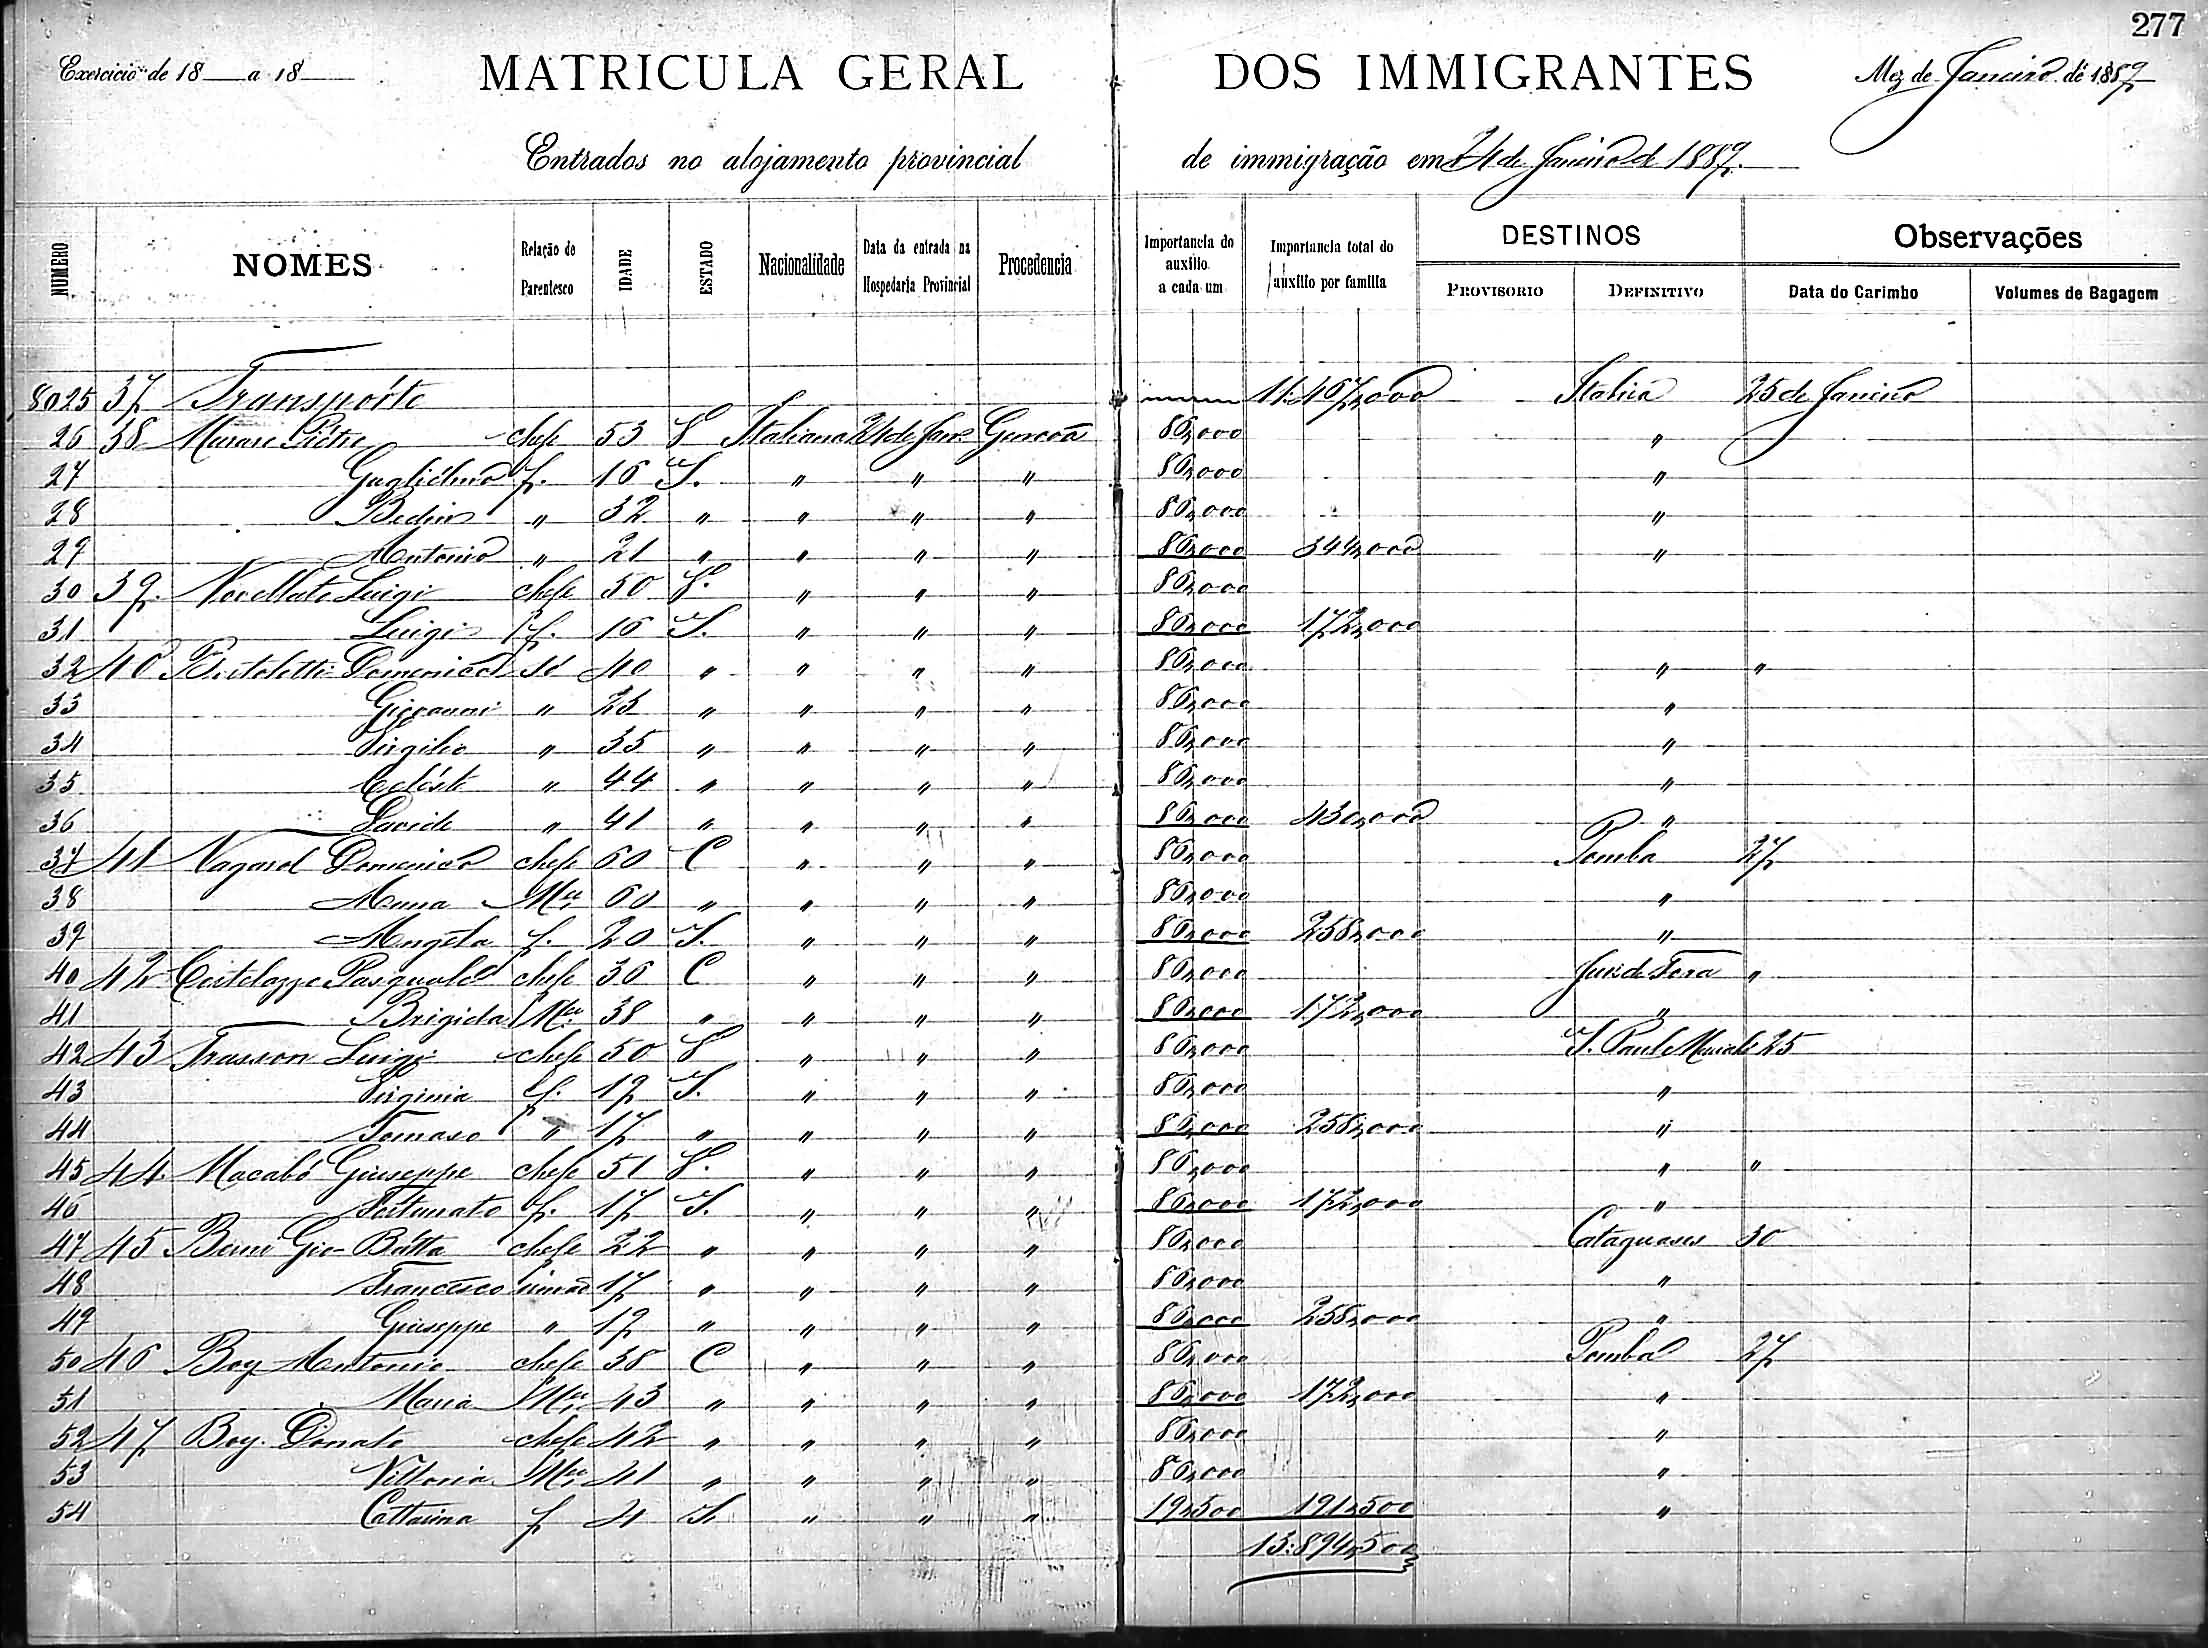 277
Exercicio de 18 a 18 MATRICULA GERAL DOS IMMIGRANTES Mez de Janeiro de 1889
Entrados no alojamento provincial de immigração em 24 de Janeiro de 1889.
NUMERO NOMES Relação de Parentesco IDADE ESTADO Nacionalidade Data da entrada na Hospedaria Provincial Procedencia Importancia do auxilio a cada um Importancia total do auxilio por familia DESTINOS Observações
PROVISORIO DEFINITIVO Data do Carimbo Volumes de Bagagem
8025 37 Transporte 11:467,000 25 de Janeiro
26 38 Pietro chefe 53 Italiana 24 de Janº Genova 86,000 "
27 Guglielmo f. 16 S. " " " 86,000 "
28 " 32 " " " " 86,000 "
29 Antonio " 21 " " " " 86,000 344,000 "
30 39 Novellato Luigi chefe 50 " " " 86,000
31 Luigi f. 16 S. " " " 86,000 172,000
32 40 Domenico 40 " " " " 86,000 " "
33 Giovanni " 23 " " " " 86,000 "
34 Virgilio " 35 " " " " 86,000 "
35 Celeste " 44 " " " " 86,000 "
36 Davide " 41 " " " " 86,000 430,000 "
37 41 Domenico chefe 60 C " " " 86,000 Pomba 27
38 Anna Mer 60 " " " " 86,000 "
39 Angela f. 20 S. " " " 86,000 258,000 "
40 42 Pasquale chefe 36 C " " " 86,000 Juiz de Fora "
41 Brigida Mer 38 " " " " 86,000 172,000 "
42 43 Luigi chefe 50 " " " 86,000 S. Paulo Muriahé 25
43 Virginia f. 19 S. " " " 86,000 "
44 Tomaso " 17 " " " " 86,000 258,000 "
45 44 Macabó Giuseppe chefe 51 " " " 86,000 " "
46 Fortunato f. 17 S. " " " 86,000 172,000 "
47 45 Gio Batta chefe 22 " " " " 86,000 Cataguases 30
48 Francesco irmão 17 " " " " 86,000 "
49 Giuseppe " 19 " " " " 86,000 258,000 "
50 46 Boy Antonio chefe 38 C " " " 86,000 Pomba 27
51 Maria Mer 43 " " " " 86,000 172,000 "
52 47 Boy Donato chefe 42 " " " " 86,000 "
53 Vittoria Mer 41 " " " " 86,000 "
54 Cattarina f 4 S. " " " 19,500 191,500 "
13:894,500